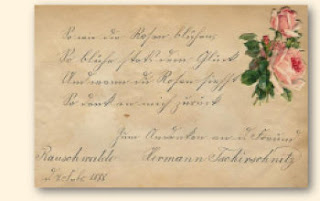 So wie die Rosen blühen,
So blühe stets dein Glück
Und wenn du Rosen siehst
So denk an mich zurück
Zum Andenken an d. Freund
Rauschwalde Hermann Tschirschnitz
d. 4. 1898